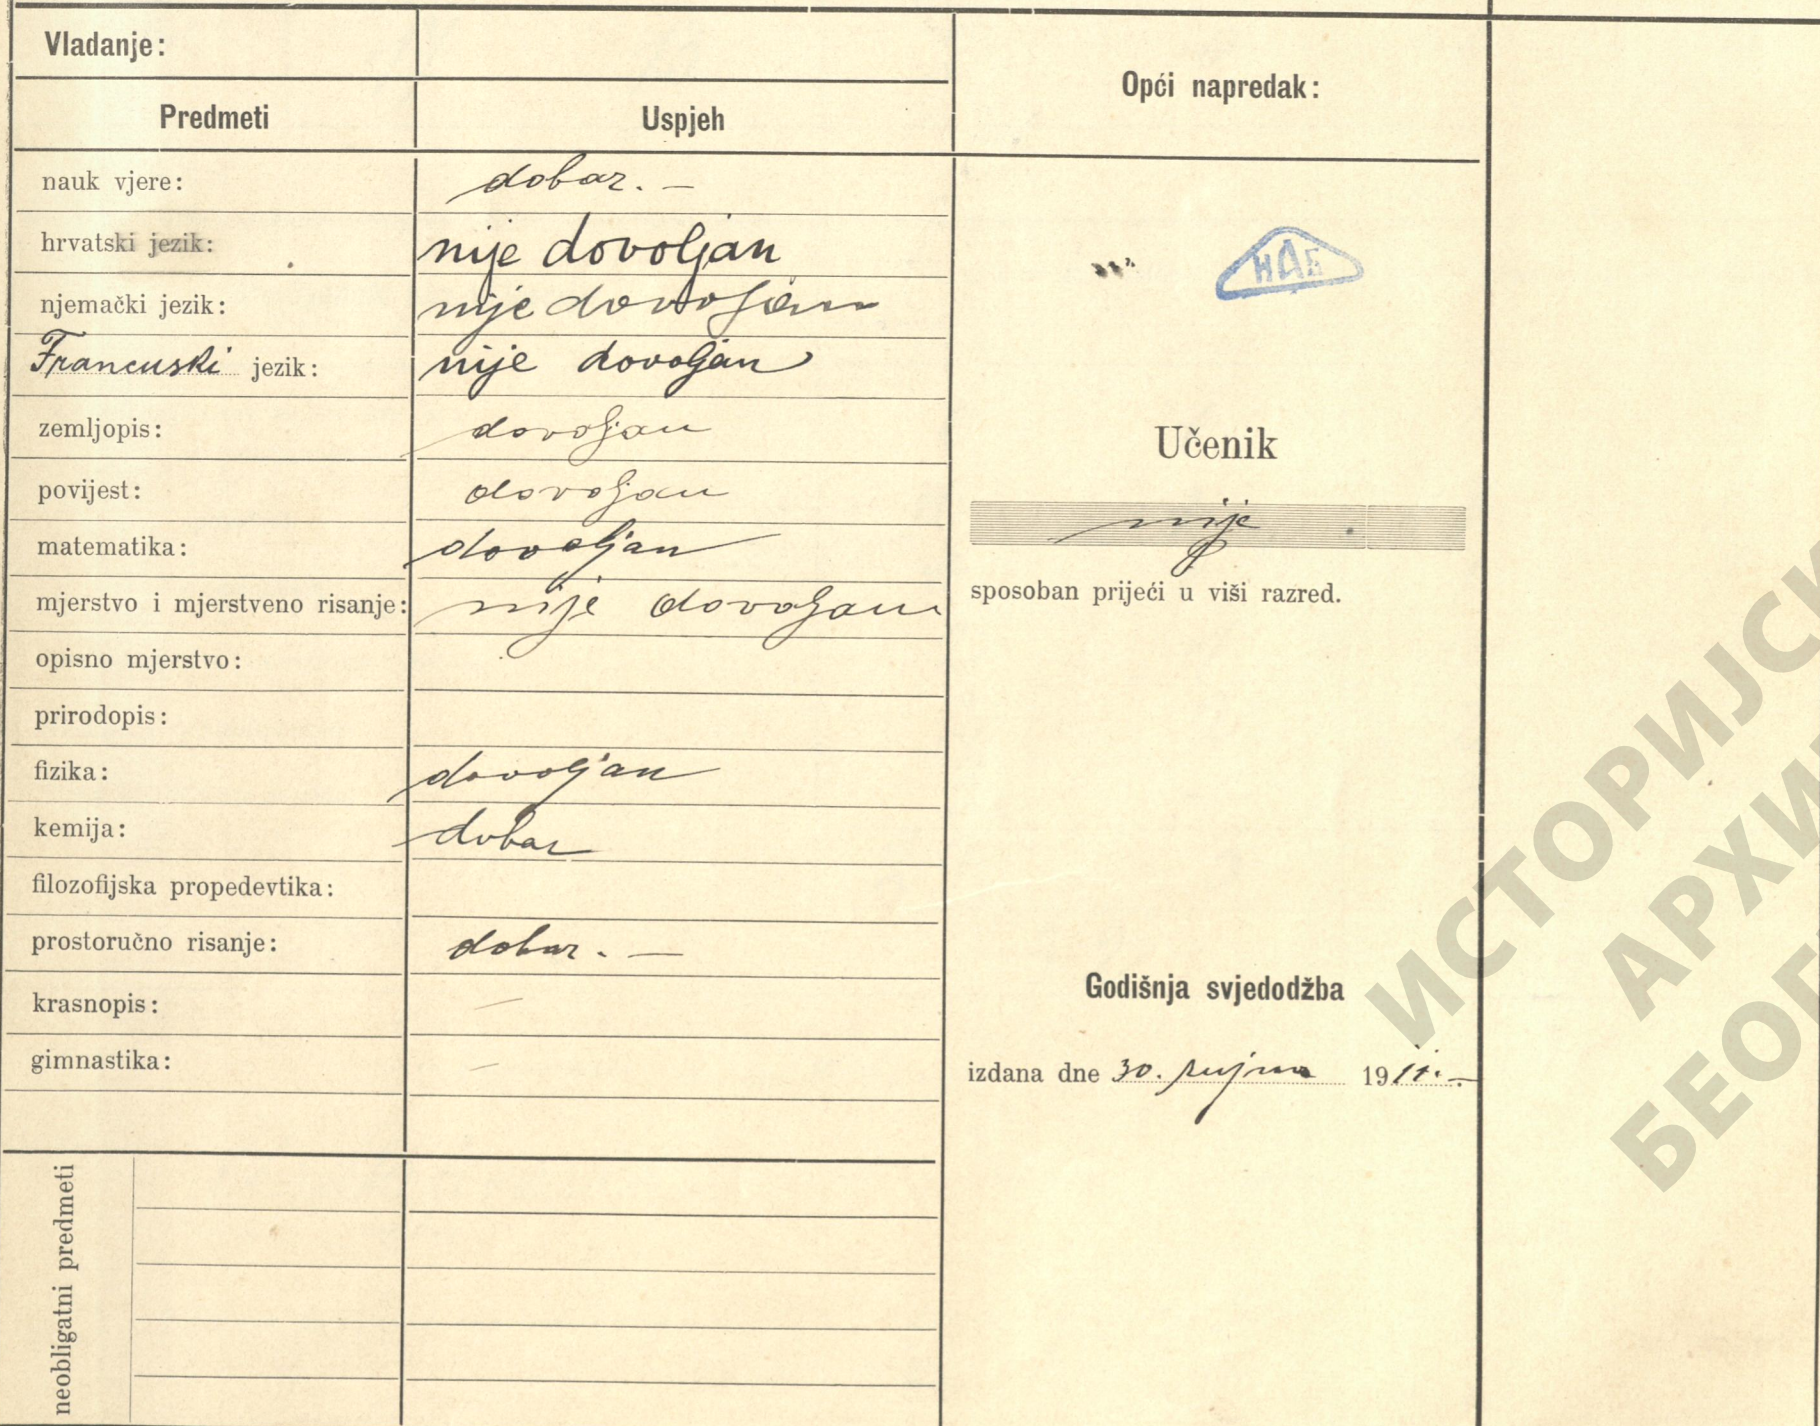 Vladanje:
Opći napredak:
Predmeti Uspjeh
nauk vjere: dobar. —
hrvatski jezik: nije dovoljan
njemački jezik: nije dovoljan
Francuski jezik: nije dovoljan
zemljopis: dovoljan
povijest: dovoljan
matematika: dovoljan
mjerstvo i mjerstveno risanje: nije dovoljan
opisno mjerstvo:
prirodopis:
fizika: dovoljan
kemija: dobar
filozofijska propedevtika:
prostoručno risanje: dobar. —
krasnopis: —
gimnastika: —
neobligatni predmeti
НАБ
Učenik
nije
sposoban prijeći u viši razred.
Godišnja svjedodžba
izdana dne 30. rujna 1911. —
ИСТОРИЈСК
АРХИ
БЕОГ